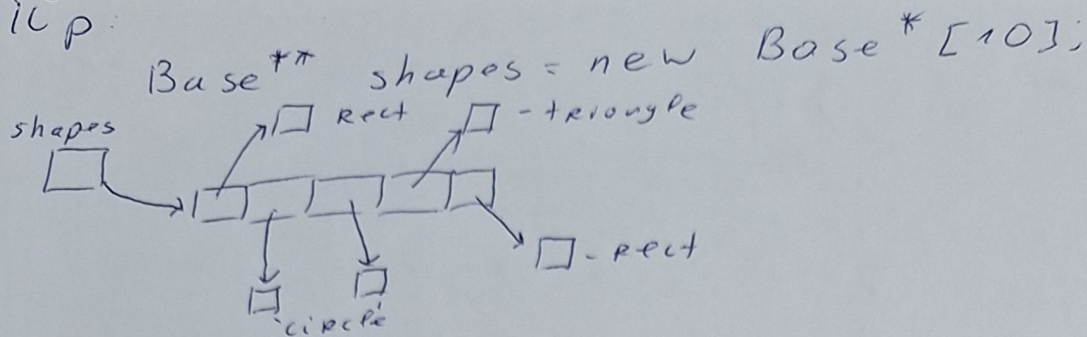 Base** shapes = new Base* [10];
shapes
Rect
- triangle
- Rect
circle